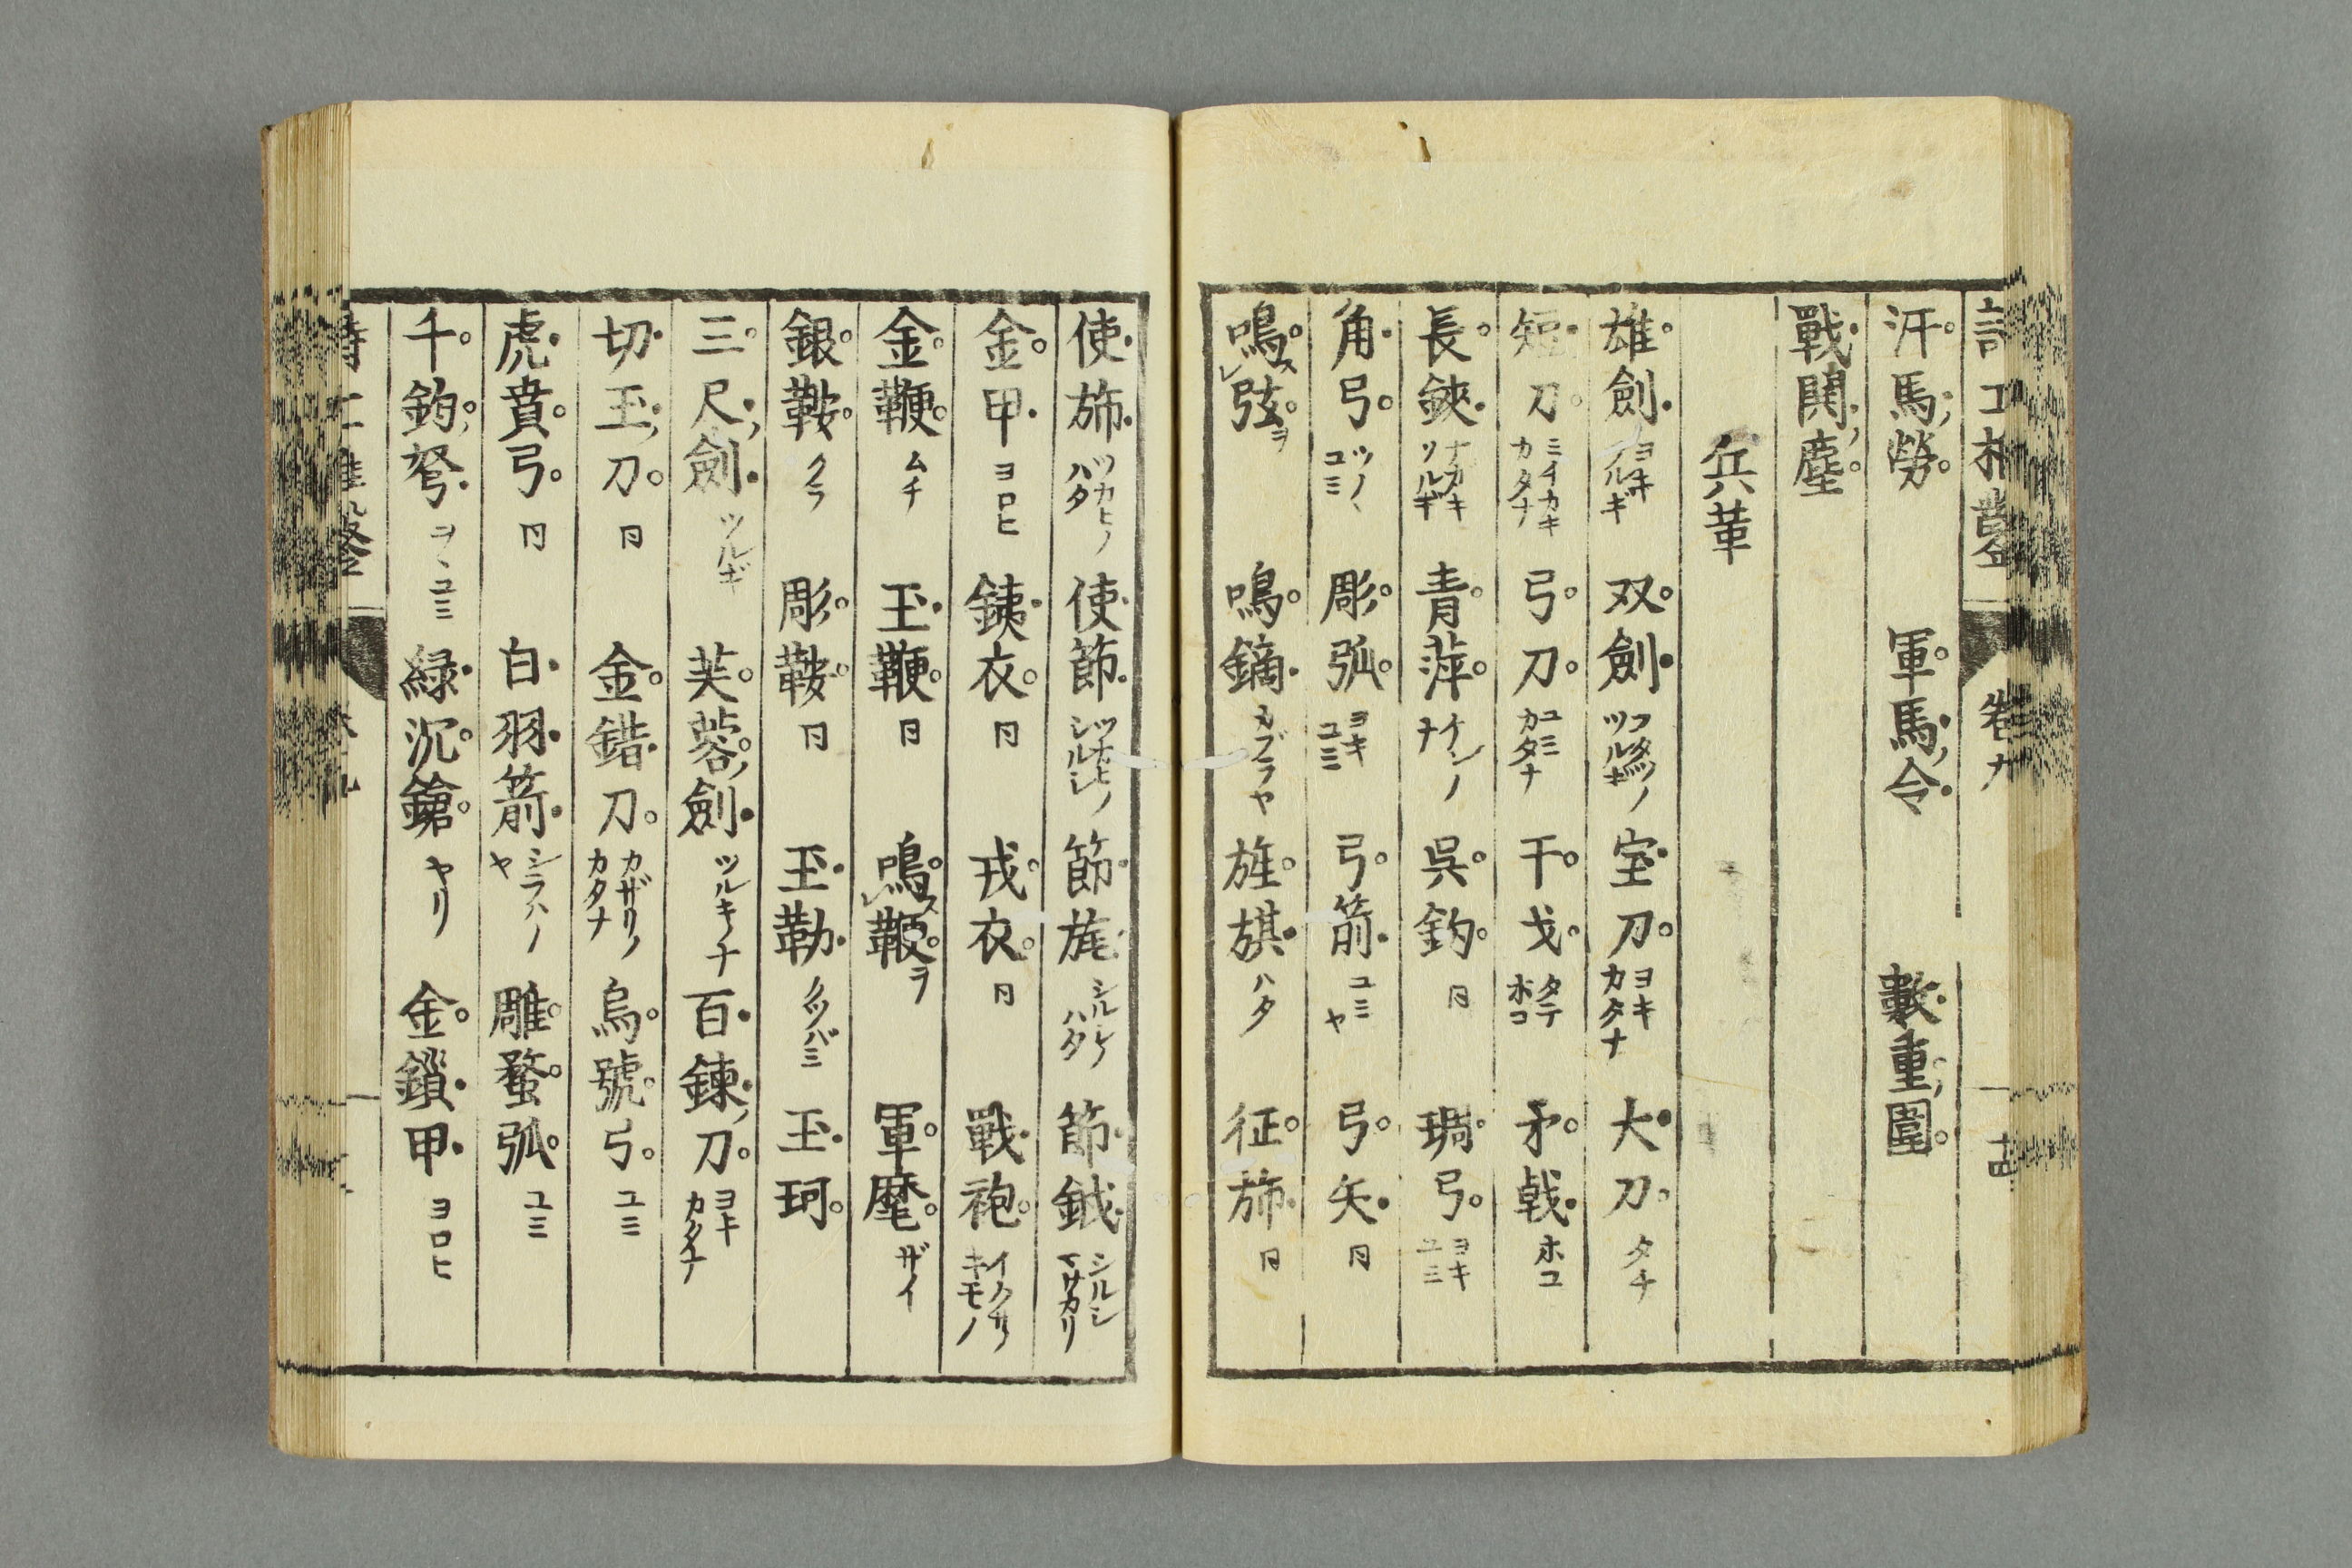 汗馬ノ勞 軍馬ノ令 數重ノ圍
戰鬨ノ塵
兵革
雄劍 ヨキツルギ 双劍 ツルギ 宝刀 ヨキカタナ 大刀 タチ
短刀 ミイカキカタナ 弓刀 ユミカタナ 干戈 タテホコ 矛戟 ホコ
長鋏 ナガキツルギ 青萍 ケンノナ 呉鈎 同 琱弓 ヨキユミ
角弓 ツノヽユミ 彫弧 ヨキユミ 弓箭 ユミヤ 弓矢 同
鳴ス㆑弦ヲ 鳴鏑 カブラヤ 旌旗 ハタ 征旆 同
使旆 ツカヒノハタ 使節 ツカヒノシルシ 節旄 ハタ 節鉞 シルシマサカリ
金甲 ヨロヒ 銕衣 同 戎衣 同 戰袍 イクサキモノ
金鞭 ムチ 玉鞭 同 鳴ス㆑鞭ヲ 軍麾 ザイ
銀鞍 クラ 彫鞍 同 玉勒 クツバミ 玉珂
三尺ノ劍 ツルギ 芙蓉ノ劍 ツルキノナ 百鍊ノ刀 ヨキカタナ
切玉ノ刀 同 金錯刀 カザリノカタナ 烏號弓 ユミ
虎賁弓 同 白羽箭 シラハノヤ 雕蝥弧 ユミ
千鈞ノ弩 ヲヽユミ 緑沉鎗 ヤリ 金鎖甲 ヨロヒ